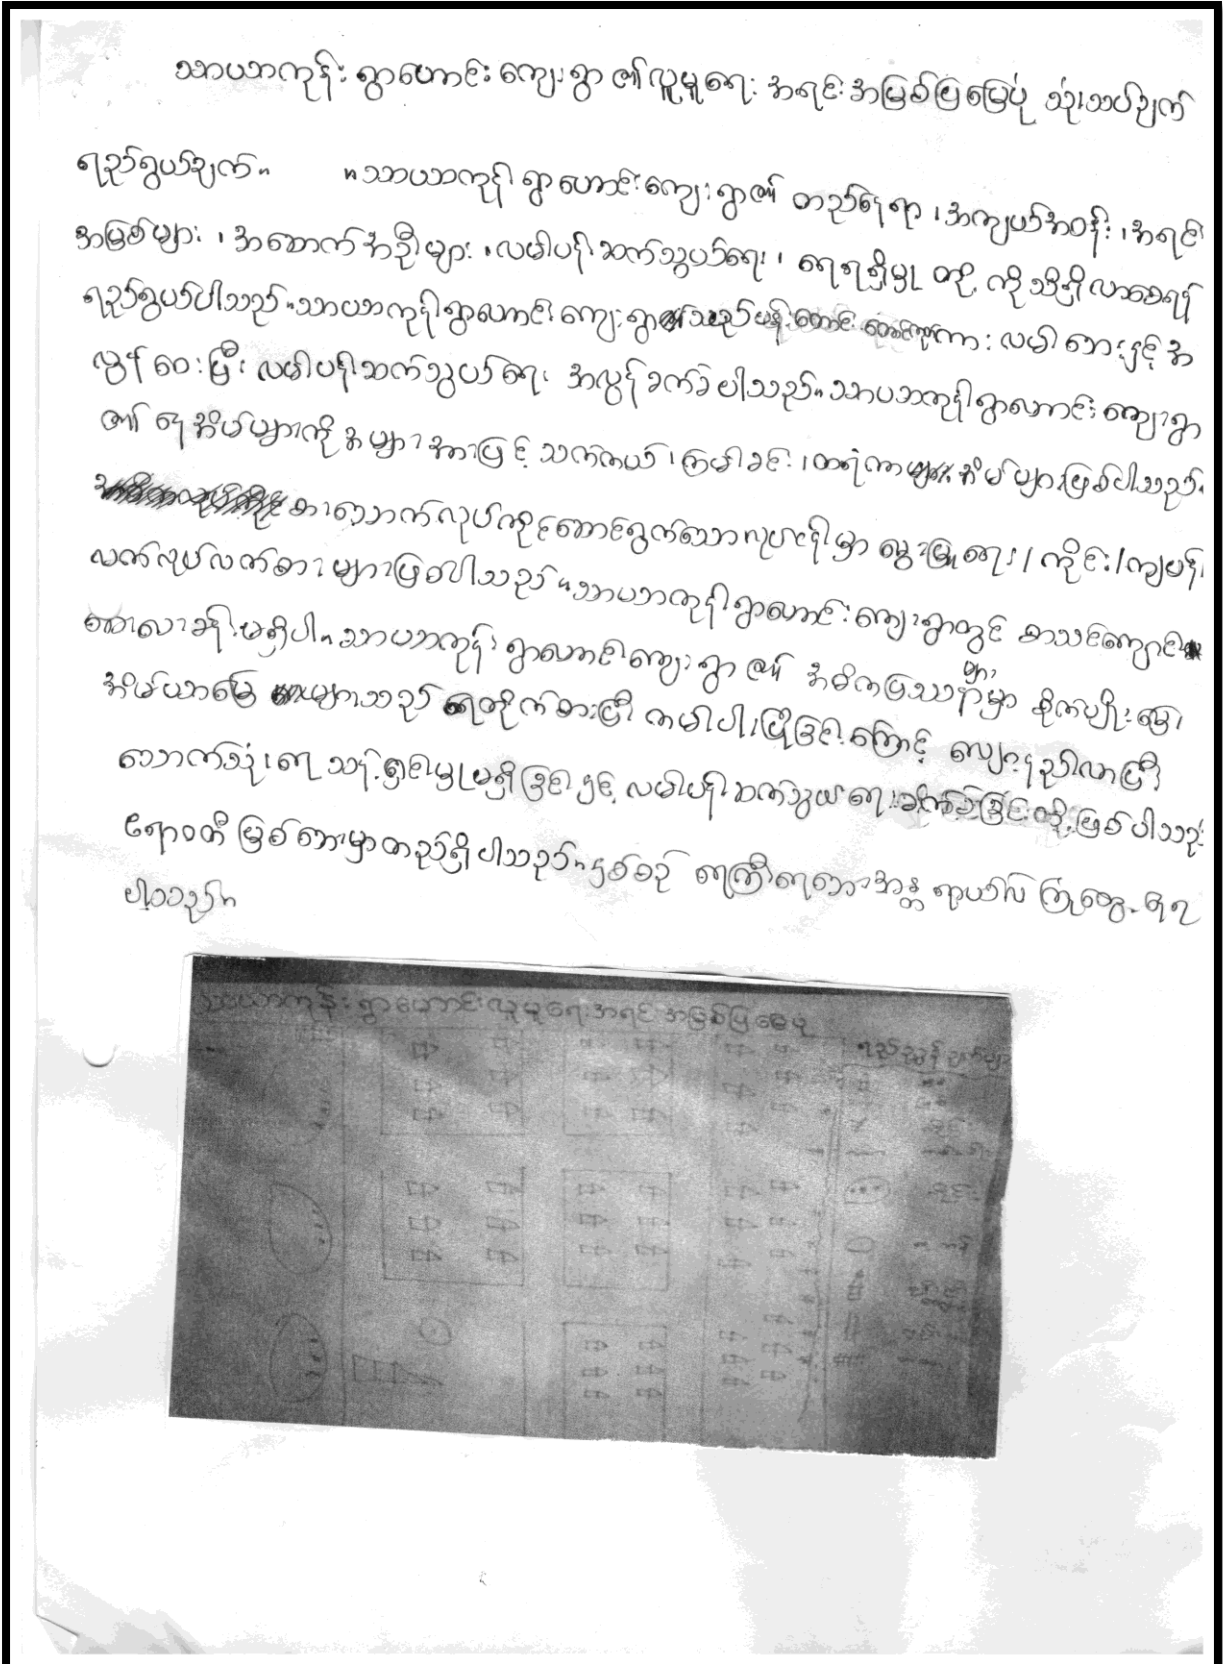 သာယာကုန်း ရွာဟောင်း ကျေးရွာ ၏ လူမှုရေး အရင်းအမြစ်ပြမြေပုံ သုံးသပ်ချက်
ရည်ရွယ်ချက်။ ။သာယာကုန်း ရွာဟောင်း ကျေးရွာ၏ တည်နေရာ ၊ အကျယ်အဝန်း ၊ အရင်း
အမြစ်များ ၊ အဆောက်အဦများ ၊ လမ်းပန်းဆက်သွယ်ရေး ၊ ရေရရှိမှု တို့ ကို သိရှိလာစေရန်
ရည်ရွယ်ပါသည်။ သာယာကုန်း ရွာဟောင်း ကျေးရွာ ကား လမ်းဘေးနှင့် အ
လွန် ဝေးပြီး လမ်းပန်းဆက်သွယ်ရေး အလွန်ခက်ခဲပါသည်။ သာယာကုန်းရွာဟောင်း ကျေးရွာ
၏ နေအိမ်များကို အများအားဖြင့် သက်ကယ်၊ ကြမ်းခင်း ၊ ထရံကာ အိမ်များဖြစ်ပါသည်။
စားသောက်လုပ်ကိုင်ဆောင်ရွက်သော လုပ်ငန်းမှာ မွေးမြူရေး / ကိုင်း / ကျပန်း
လက်လုပ်လက်စားများဖြစ်ပါသည်။ သာယာကုန်းရွာဟောင်း ကျေးရွာတွင် စာသင်ကျောင်း
ဆေးပေးခန်း မရှိပါ။ သာယာကုန်း ရွာဟောင်း ကျေးရွာ ၏ အဓိကပြဿနာများမှာ စိုက်ပျိုးမြေ၊
အိမ်ယာမြေ များသည် ရေတိုက်စားပြီး ကမ်းပါးပြိုခြင်းကြောင့် လျော့နည်းလာပြီး
သောက်သုံးရေ သန့်ရှင်းမှုမရှိခြင်း နှင့် လမ်းပန်းဆက်သွယ်ရေးခက်ခဲခြင်းတို့ ဖြစ်ပါသည်။
ဧရာဝတီ မြစ်ဘေးမှာတည်ရှိပါသည်။ နှစ်စဉ် ရေကြီးရေဘေးအန္တရာယ်ပါ ကြုံတွေ့နေရ
ပါသည်။
သာယာကုန်း ရွာဟောင်းလူမှုရေးအရင်းအမြစ်ပြမြေပုံ
ရည်ညွှန်းချက်များ